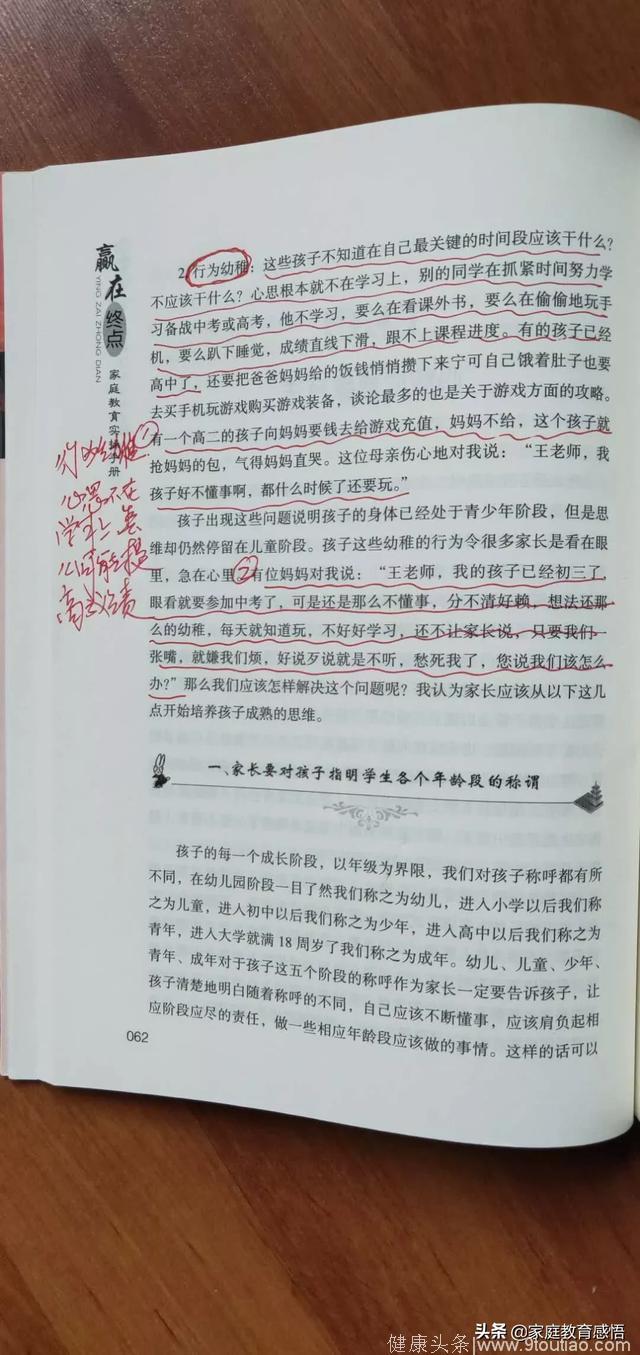 赢在终点
YING ZAI ZHONG DIAN
家庭教育实操手册
2. 行为幼稚：这些孩子不知道在自己最关键的时间段应该干什么？
不应该干什么？心思根本就不在学习上，别的同学在抓紧时间努力学
习备战中考或高考，他不学习，要么在看课外书，要么在偷偷地玩手
机，要么趴下睡觉，成绩直线下滑，跟不上课程进度。有的孩子已经
高中了，还要把爸爸妈妈给的饭钱悄悄攒下来宁可自己饿着肚子也要
去买手机玩游戏购买游戏装备，谈论最多的也是关于游戏方面的攻略。
有一个高二的孩子向妈妈要钱去给游戏充值，妈妈不给，这个孩子就
抢妈妈的包，气得妈妈直哭。这位母亲伤心地对我说：“王老师，我
孩子好不懂事啊，都什么时候了还要玩。”
孩子出现这些问题说明孩子的身体已经处于青少年阶段，但是思
维却仍然停留在儿童阶段。孩子这些幼稚的行为令很多家长是看在眼
里，急在心里②有位妈妈对我说：“王老师，我的孩子已经初三了，
眼看就要参加中考了，可是还是那么不懂事，分不清好赖，想法还那
么的幼稚，每天就知道玩，不好好学习，还不让家长说，只要我们一
张嘴，就嫌我们烦，好说歹说就是不听，愁死我了，您说我们该怎么
办？”那么我们应该怎样解决这个问题呢？我认为家长应该从以下这几
点开始培养孩子成熟的思维。
行为幼稚①
心思不在
学习上 怎
么可能提
高成绩
一、家长要对孩子指明学生各个年龄段的称谓
孩子的每一个成长阶段，以年级为界限，我们对孩子称呼都有所
不同，在幼儿园阶段一目了然我们称之为幼儿，进入小学以后我们称
之为儿童，进入初中以后我们称之为少年，进入高中以后我们称之为
青年，进入大学就满 18 周岁了我们称之为成年。幼儿、儿童、少年、
青年、成年对于孩子这五个阶段的称呼作为家长一定要告诉孩子，让
孩子清楚地明白随着称呼的不同，自己应该不断懂事，应该肩负起相
应阶段应尽的责任，做一些相应年龄段应该做的事情。这样的话可以
062
头条 @家庭教育感悟
健康头条 www.9toutiao.com